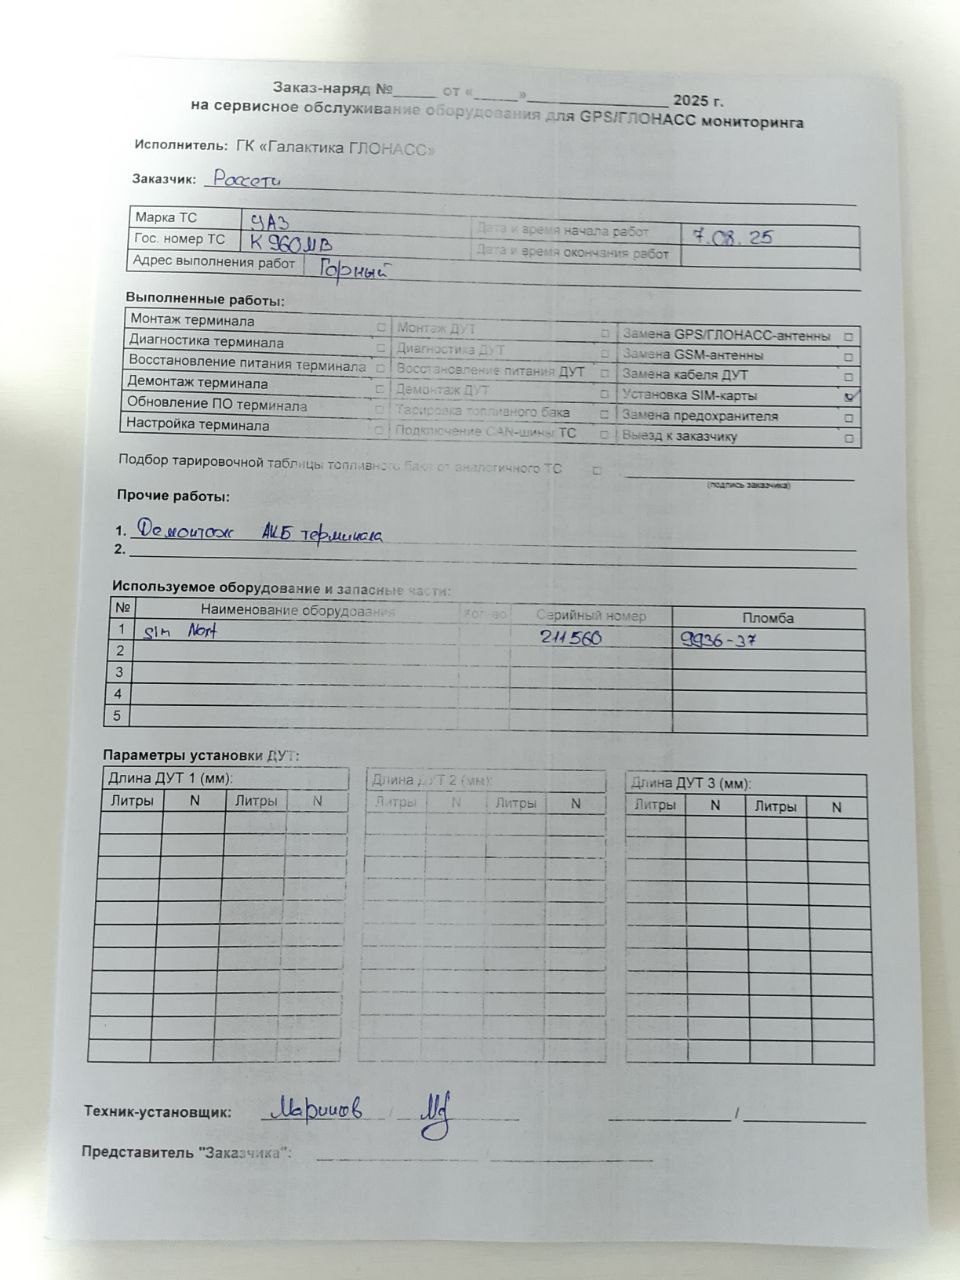 Заказ-наряд №_____ от «_____»_________________ 2025 г.
на сервисное обслуживание оборудования для GPS/ГЛОНАСС мониторинга
Исполнитель: ГК «Галактика ГЛОНАСС»
Заказчик: Россети
Марка ТС УАЗ Дата и время начала работ 7.08.25
Гос. номер ТС К960МВ Дата и время окончания работ
Адрес выполнения работ Горный
Выполненные работы:
Монтаж терминала □ Монтаж ДУТ □ Замена GPS/ГЛОНАСС-антенны □
Диагностика терминала □ Диагностика ДУТ □ Замена GSM-антенны □
Восстановление питания терминала □ Восстановление питания ДУТ □ Замена кабеля ДУТ □
Демонтаж терминала □ Демонтаж ДУТ □ Установка SIM-карты ☑
Обновление ПО терминала □ Тарировка топливного бака □ Замена предохранителя □
Настройка терминала □ Подключение CAN-шины ТС □ Выезд к заказчику □
Подбор тарировочной таблицы топливного бака от аналогичного ТС □
(подпись заказчика)
Прочие работы:
1. Демонтаж АКБ терминала
2.
Используемое оборудование и запасные части:
№ Наименование оборудования Кол-во Серийный номер Пломба
1 sim Nort 211560 9936-37
2
3
4
5
Параметры установки ДУТ:
Длина ДУТ 1 (мм): Длина ДУТ 2 (мм): Длина ДУТ 3 (мм):
Литры N Литры N Литры N Литры N Литры N Литры N
Техник-установщик: Маринов / /
Представитель "Заказчика": /